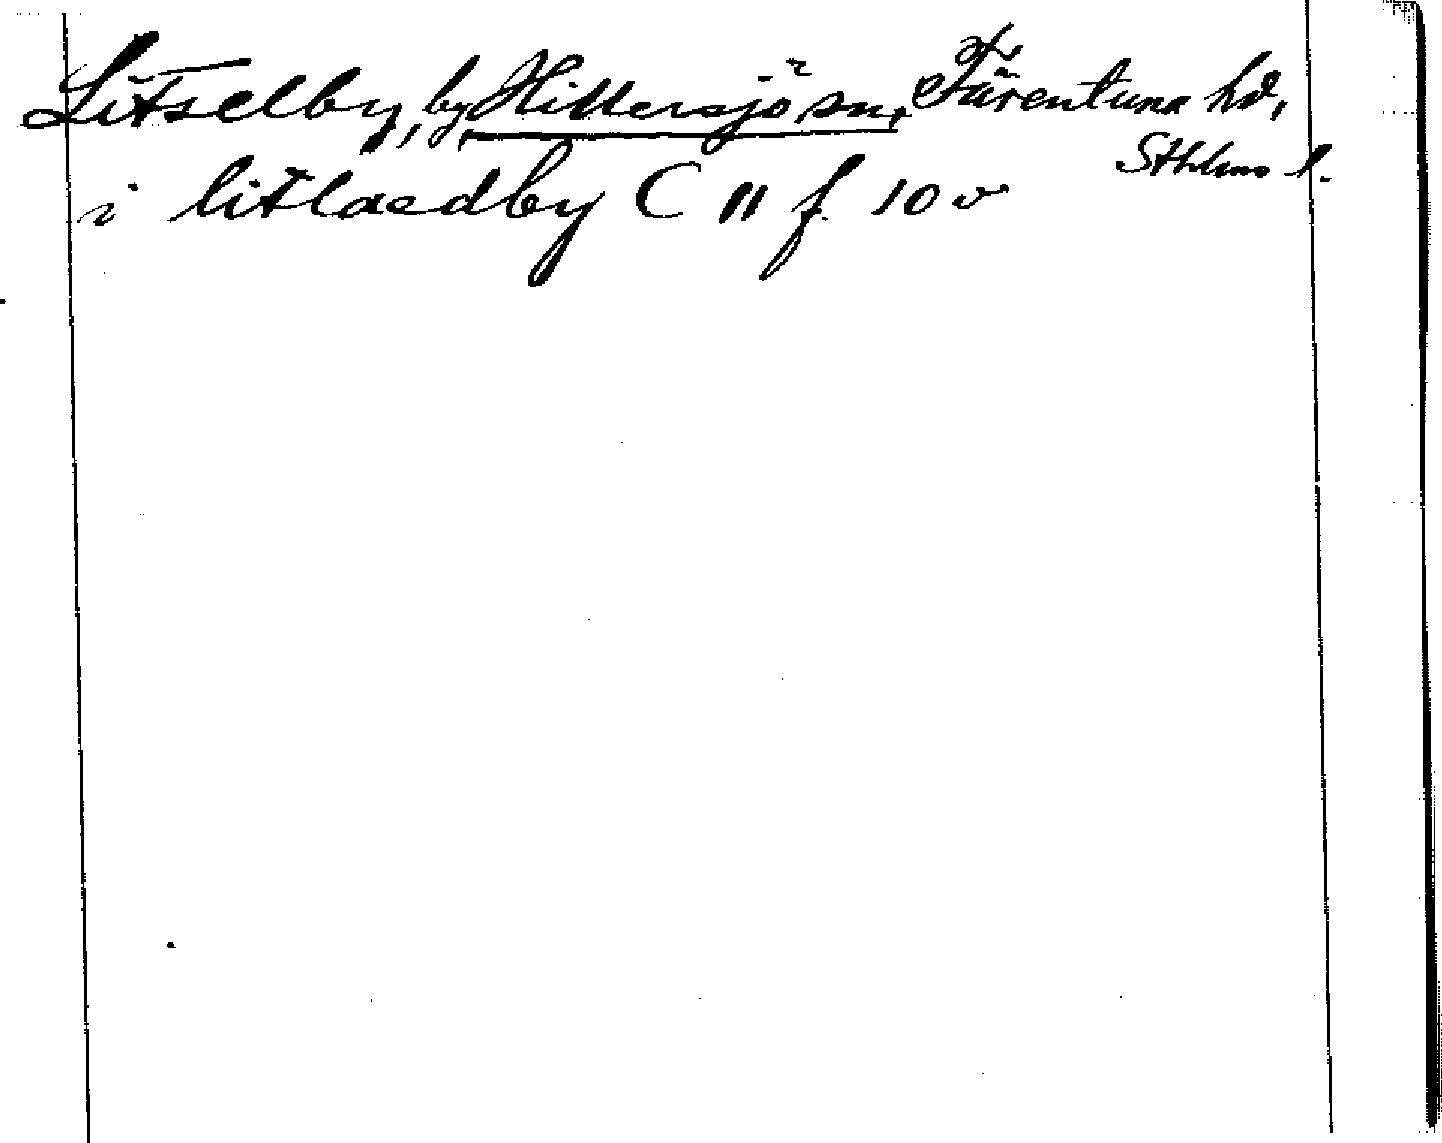 Litselby, by, Hillersjö sn, Färentuna hd,
Sthlms l.
i litlaedby C 11 f. 10 v